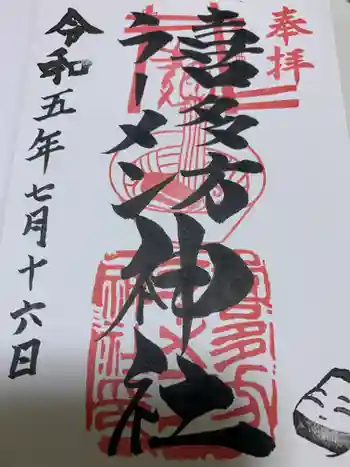 奉拝
喜多方
ラーメン神社
令和五年七月十六日